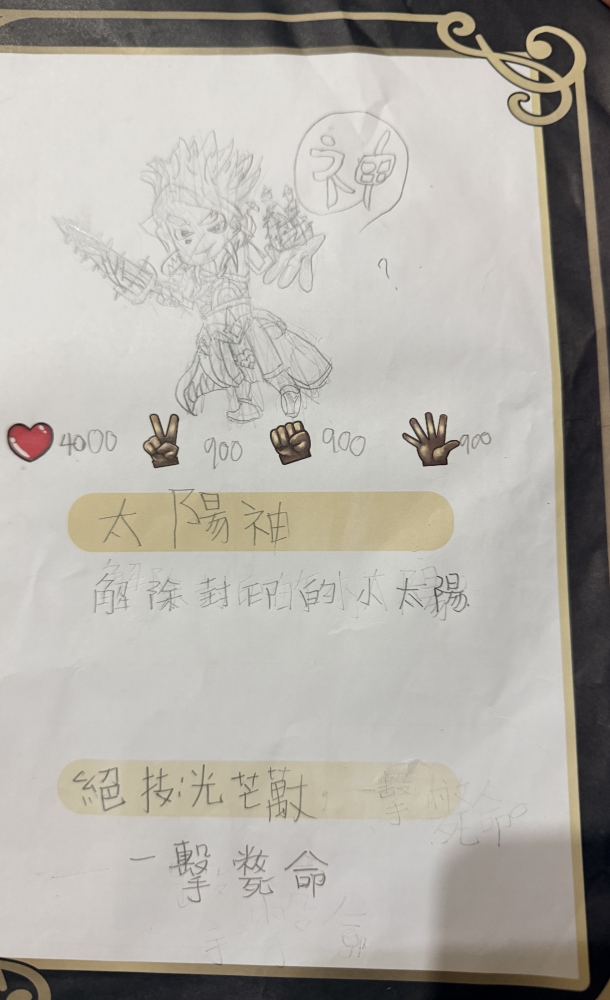 神
?
4000 900 900 900
太陽神
解除封印的小太陽
絕技:光芒萬丈
一擊斃命